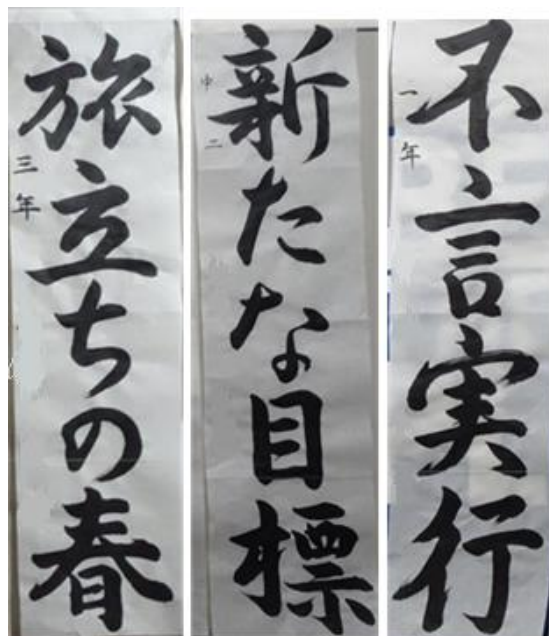 不言実行
一年
新たな目標
中二
旅立ちの春
三年